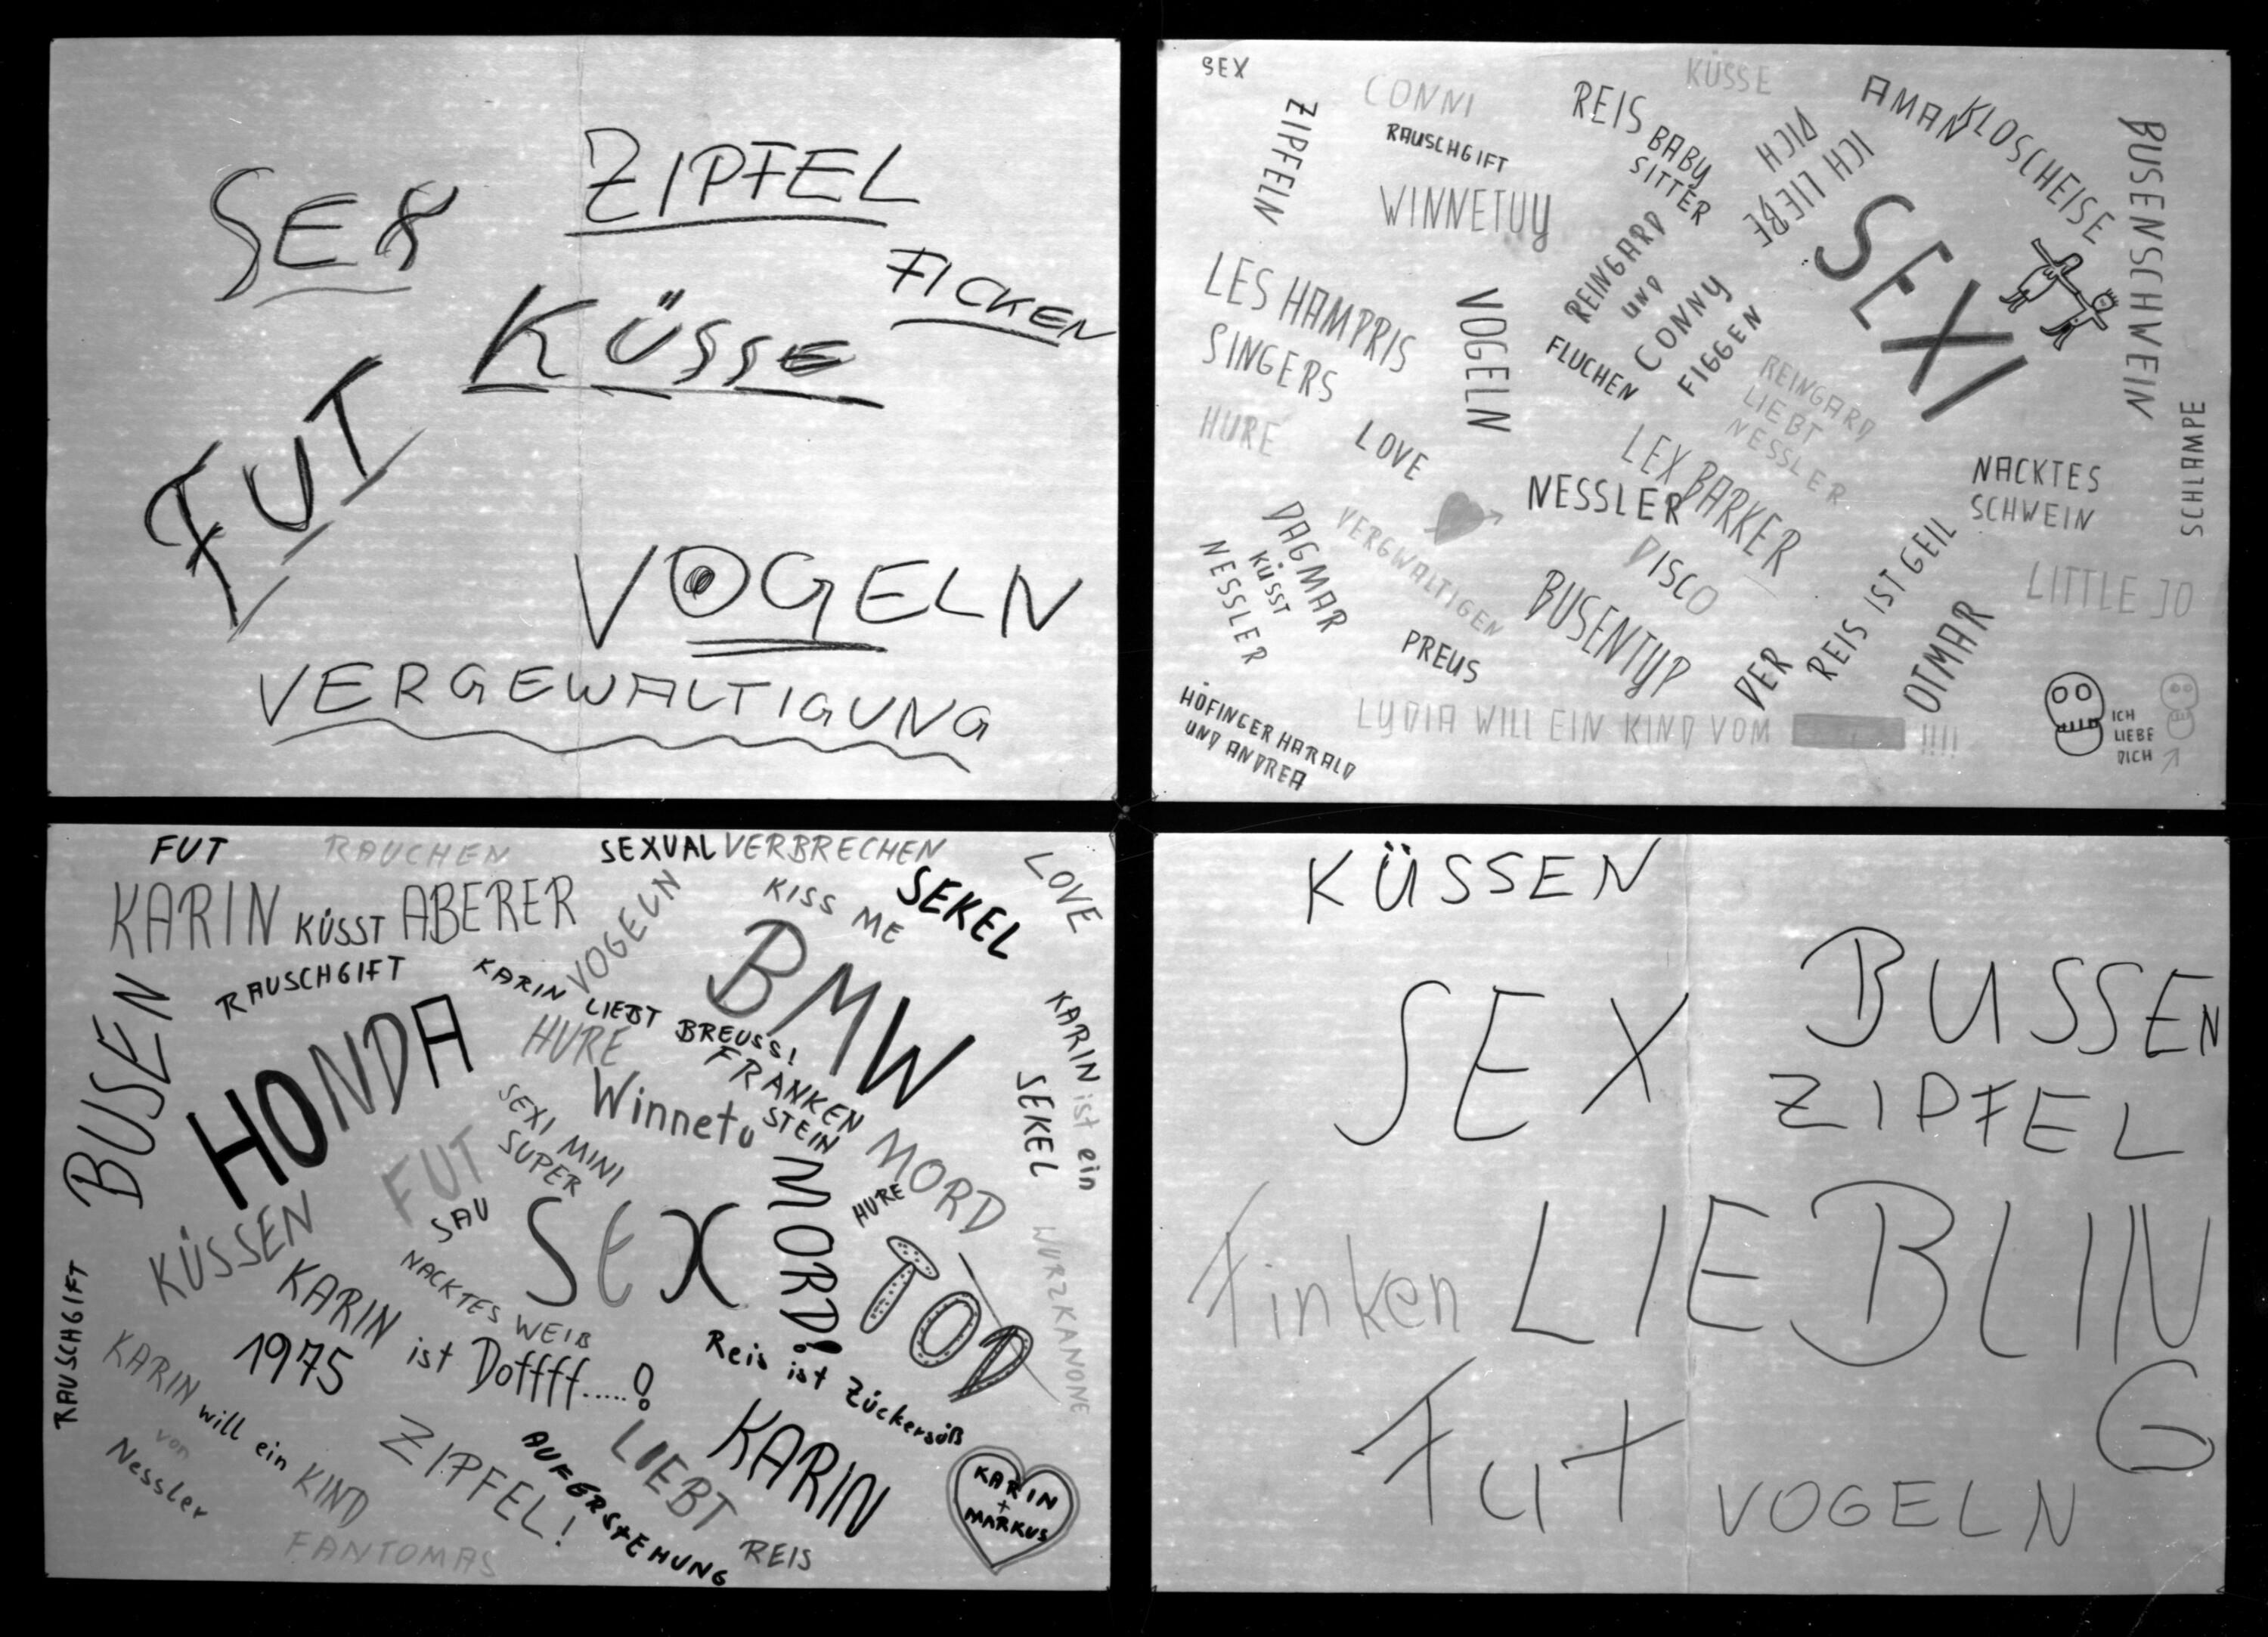 SEX
ZIPFEL
FICKEN
KÜSSE
FUT
VOGELN
VERGEWALTIGUNG
SEX
ZIPFELN
CONNI
RAUSCHGIFT
WINNETUY
REIS BABY
SITTER
KÜSSE
ICH LIEBE
DICH
AMAN
KLOSCHEISE
BUSENSCHWEIN
SEXI
LES HAMPRIS
SINGERS
VOGELN
REINGARD
UND
CONNY
FIGGEN
FLUCHEN
REINGARD
LIEBT
NESSLER
HURE
LOVE
NESSLER
LEX BARKER
NACKTES
SCHWEIN
SCHLAMPE
DAGMAR
KÜSST
NESSLER
VERGWALTIGEN
DISCO
BUSENTYP
PREUS
DER
REIS IST GEIL
OTMAR
LITTLE JO
HÖFINGER HARALD
UND ANDREA
LYDIA WILL EIN KIND VOM !!!!
ICH
LIEBE
DICH
FUT
RAUCHEN
SEXUALVERBRECHEN
LOVE
KARIN KÜSST ABERER
VOGELN
KISS ME
SEKEL
RAUSCHGIFT
KARIN LIEBT BREUSS!
BMW
BUSEN
HONDA
HURE
Winnetu
FRANKEN
STEIN
KARIN ist ein
SEKEL
SEXI MINI
SUPER
FUT
SAU
SEX
MORD!
MORD
HURE
TOD
WURZKANONE
KÜSSEN
NACKTES WEIB
KARIN ist Doffff.....!
1975
Reis ist Zückersüß
RAUSCHGIFT
KARIN will ein KIND
von
Nessler
ZIPFEL!
AUFERSTEHUNG
KARIN
LIEBT
REIS
KARIN
+
MARKUS
FANTOMAS
KÜSSEN
SEX
BUSSEN
ZIPFEL
Finken
LIEBLING
Fut
VOGELN